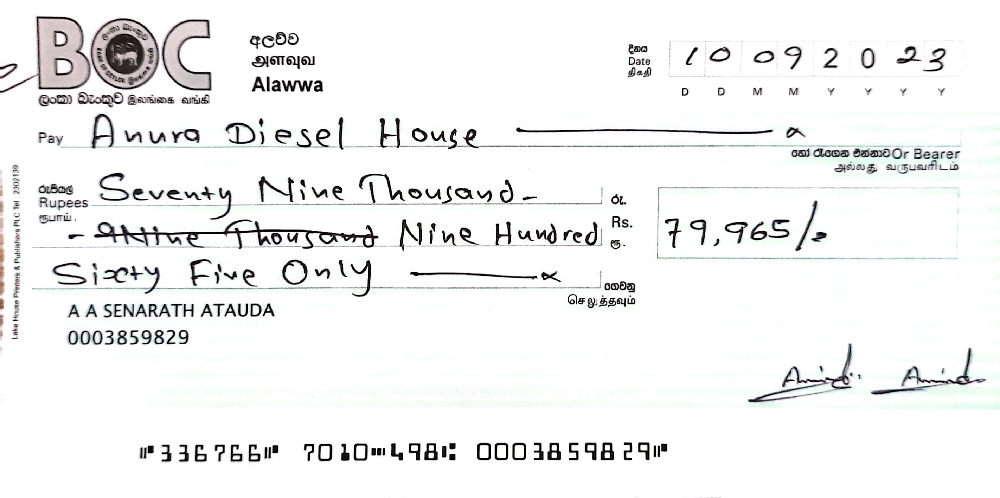 BOC
ලංකා බැංකුව இலங்கை வங்கி
අලව්ව
அளவ்வ
Alawwa
දිනය
Date
திகதி
10 09 2023
D D M M Y Y Y Y
Pay Anura Diesel House
හෝ රැගෙන එන්නාට Or Bearer
அல்லது வருபவரிடம்
රුපියල්
Rupees
ரூபாய்
Seventy Nine Thousand -
- Nine Thousand Nine Hundred
Sixty Five Only
රු.
Rs.
ரூ.
79,965/=
ගෙවනු
செலுத்தவும்
A A SENARATH ATAUDA
0003859829
Lake House Printers & Publishers PLC Tel : 2302139
⑈336766⑈ 7010⑉498⑆ 0003859829⑈